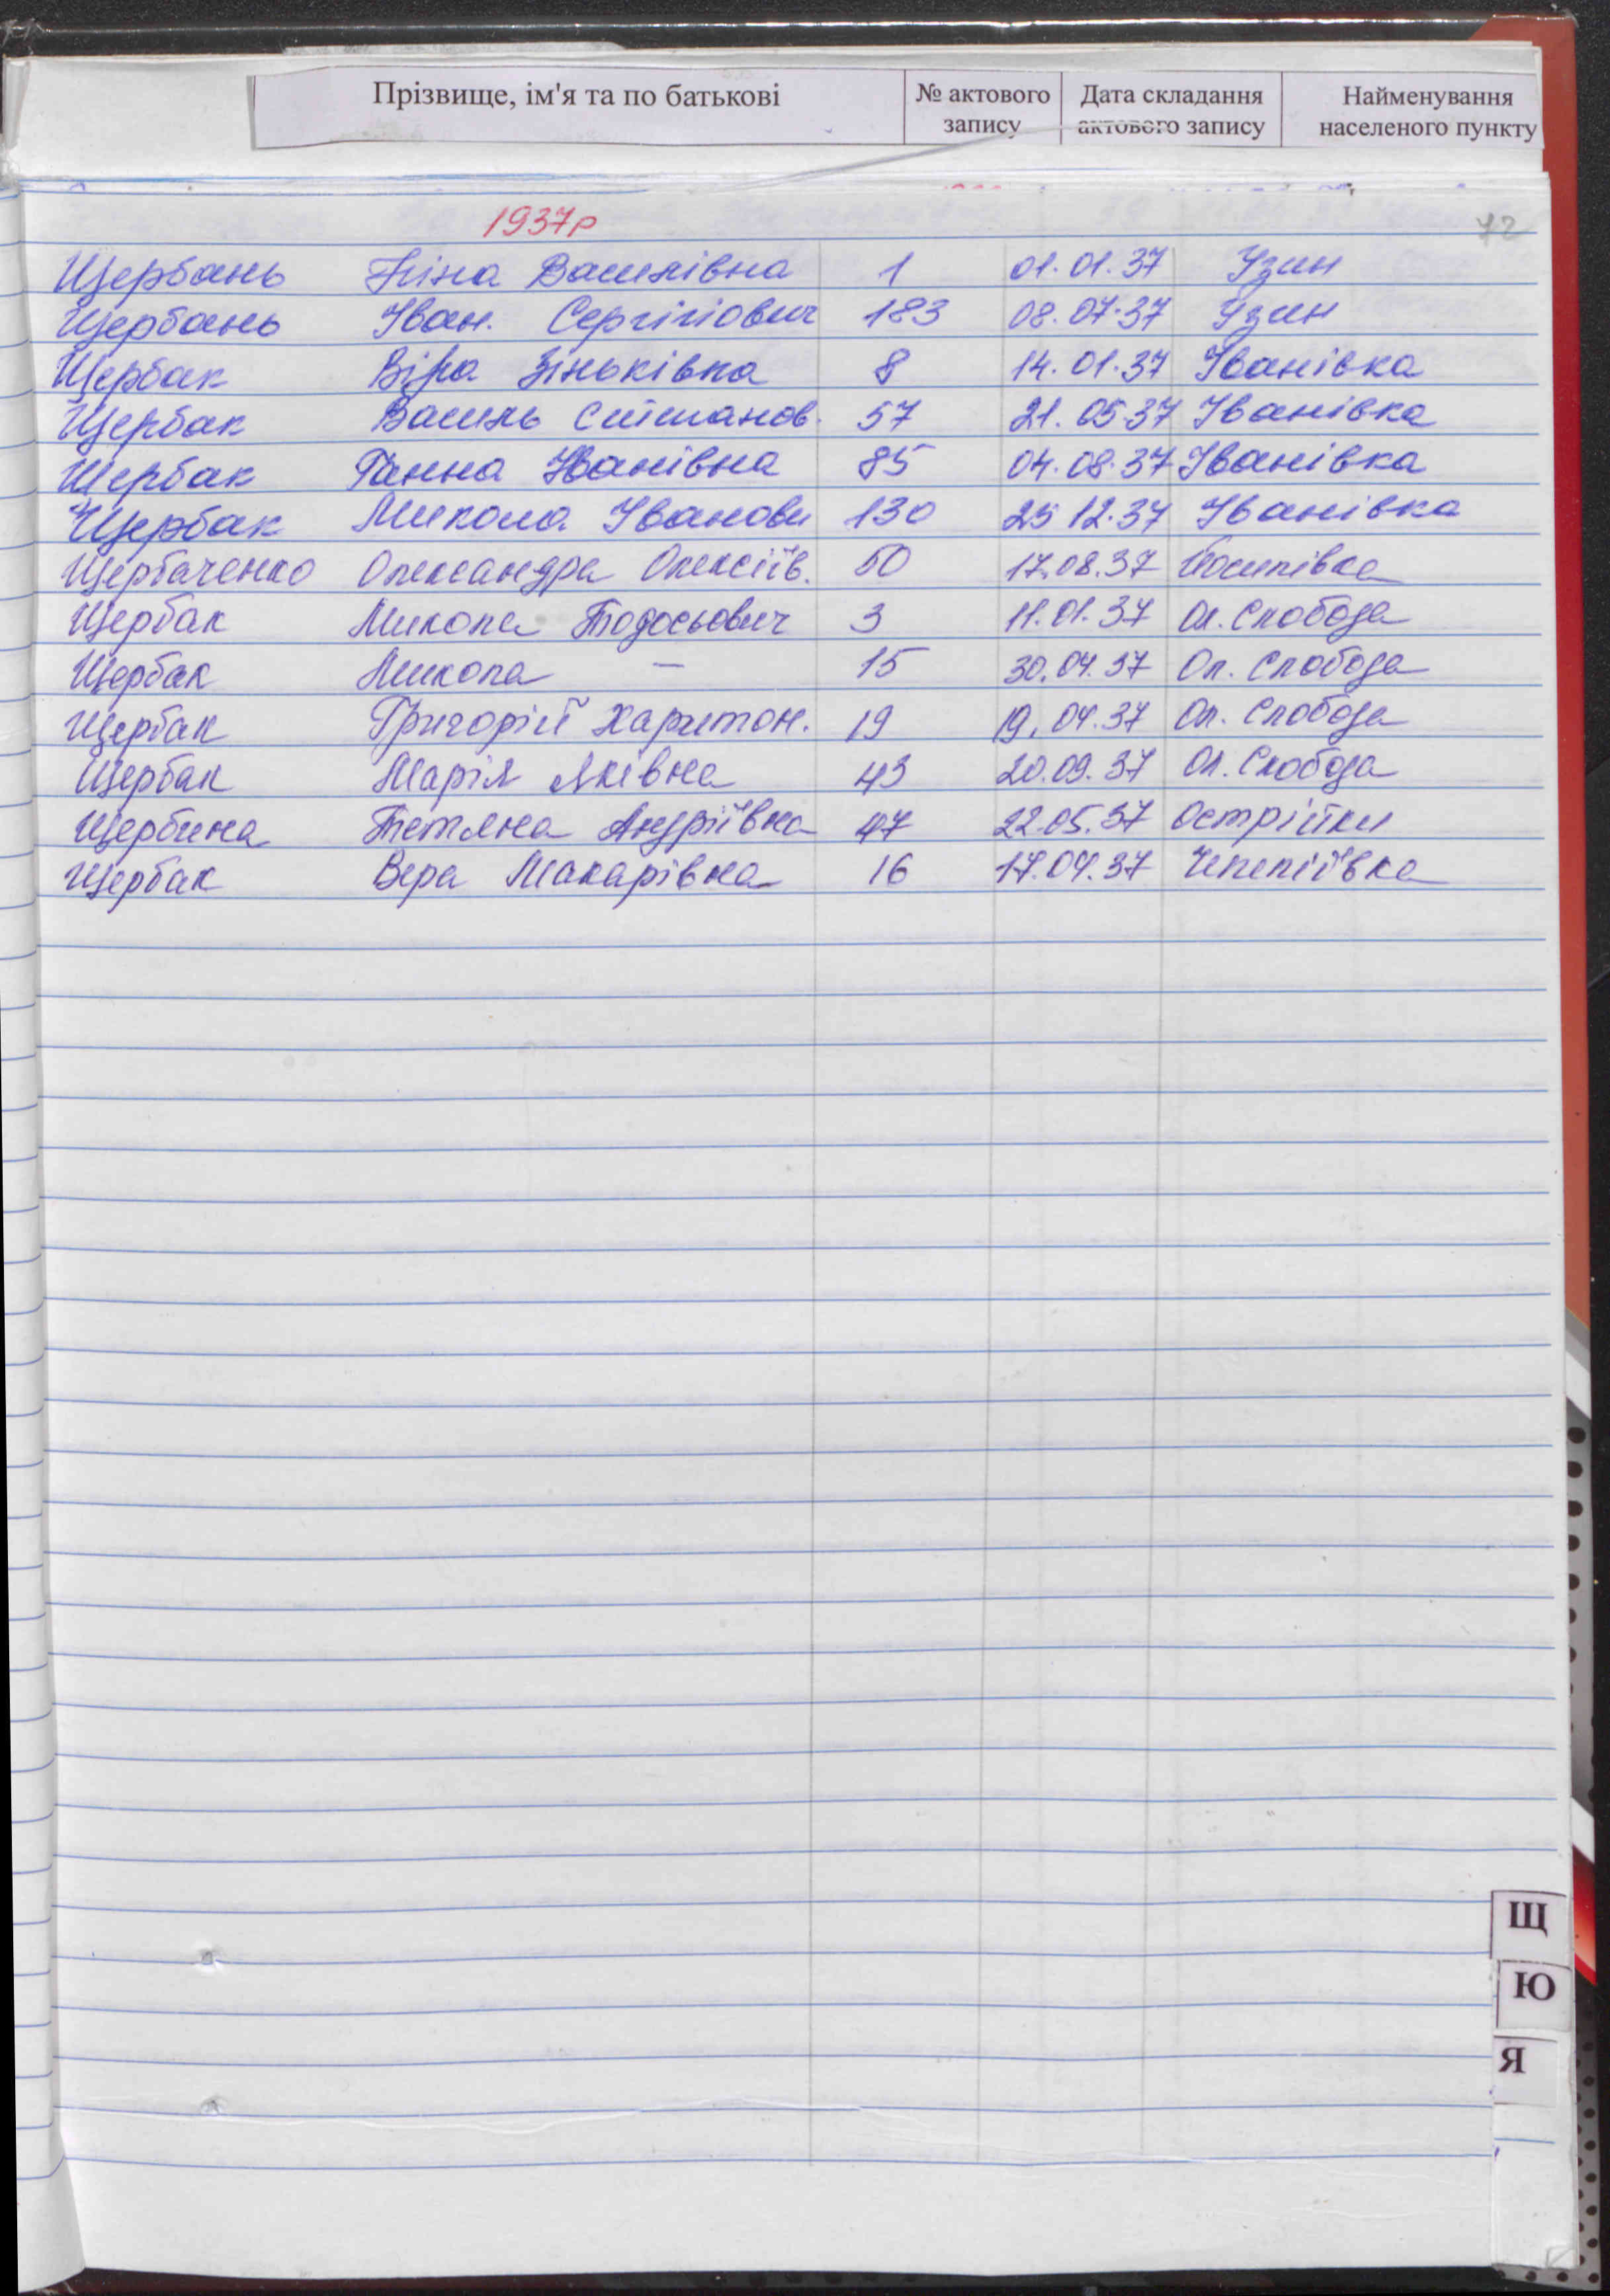 Прізвище, ім'я та по батькові № актового запису Дата складання актового запису Найменування населеного пункту
1937р
72
Щербань Ніна Василівна 1 01.01.37 Узин
Щербань Іван. Сергійович 183 08.07.37 Узин
Щербак Віра Зіньківна 8 14.01.37 Іванівка
Щербак Василь Степанов. 57 21.05.37 Іванівка
Щербак Ганна Іванівна 85 04.08.37 Іванівка
Щербак Микола Іванови 130 25 12.37 Іванівка
Щербаченко Олександра Олексіїв. 50 17.08.37 Йосипівка
Щербак Микола Тодосьович 3 11.01.37 Ол. Слобода
Щербак Микола — 15 30.04.37 Ол. Слобода
Щербак Григорій Харитон. 19 19.04.37 Ол. Слобода
Щербак Марія Яківна 43 20.09.37 Ол. Слобода
Щербина Тетяна Андріївна 47 22.05.37 Острійки
Щербак Вера Макарівна 16 17.04.37 Чепеліївка
Щ
Ю
Я